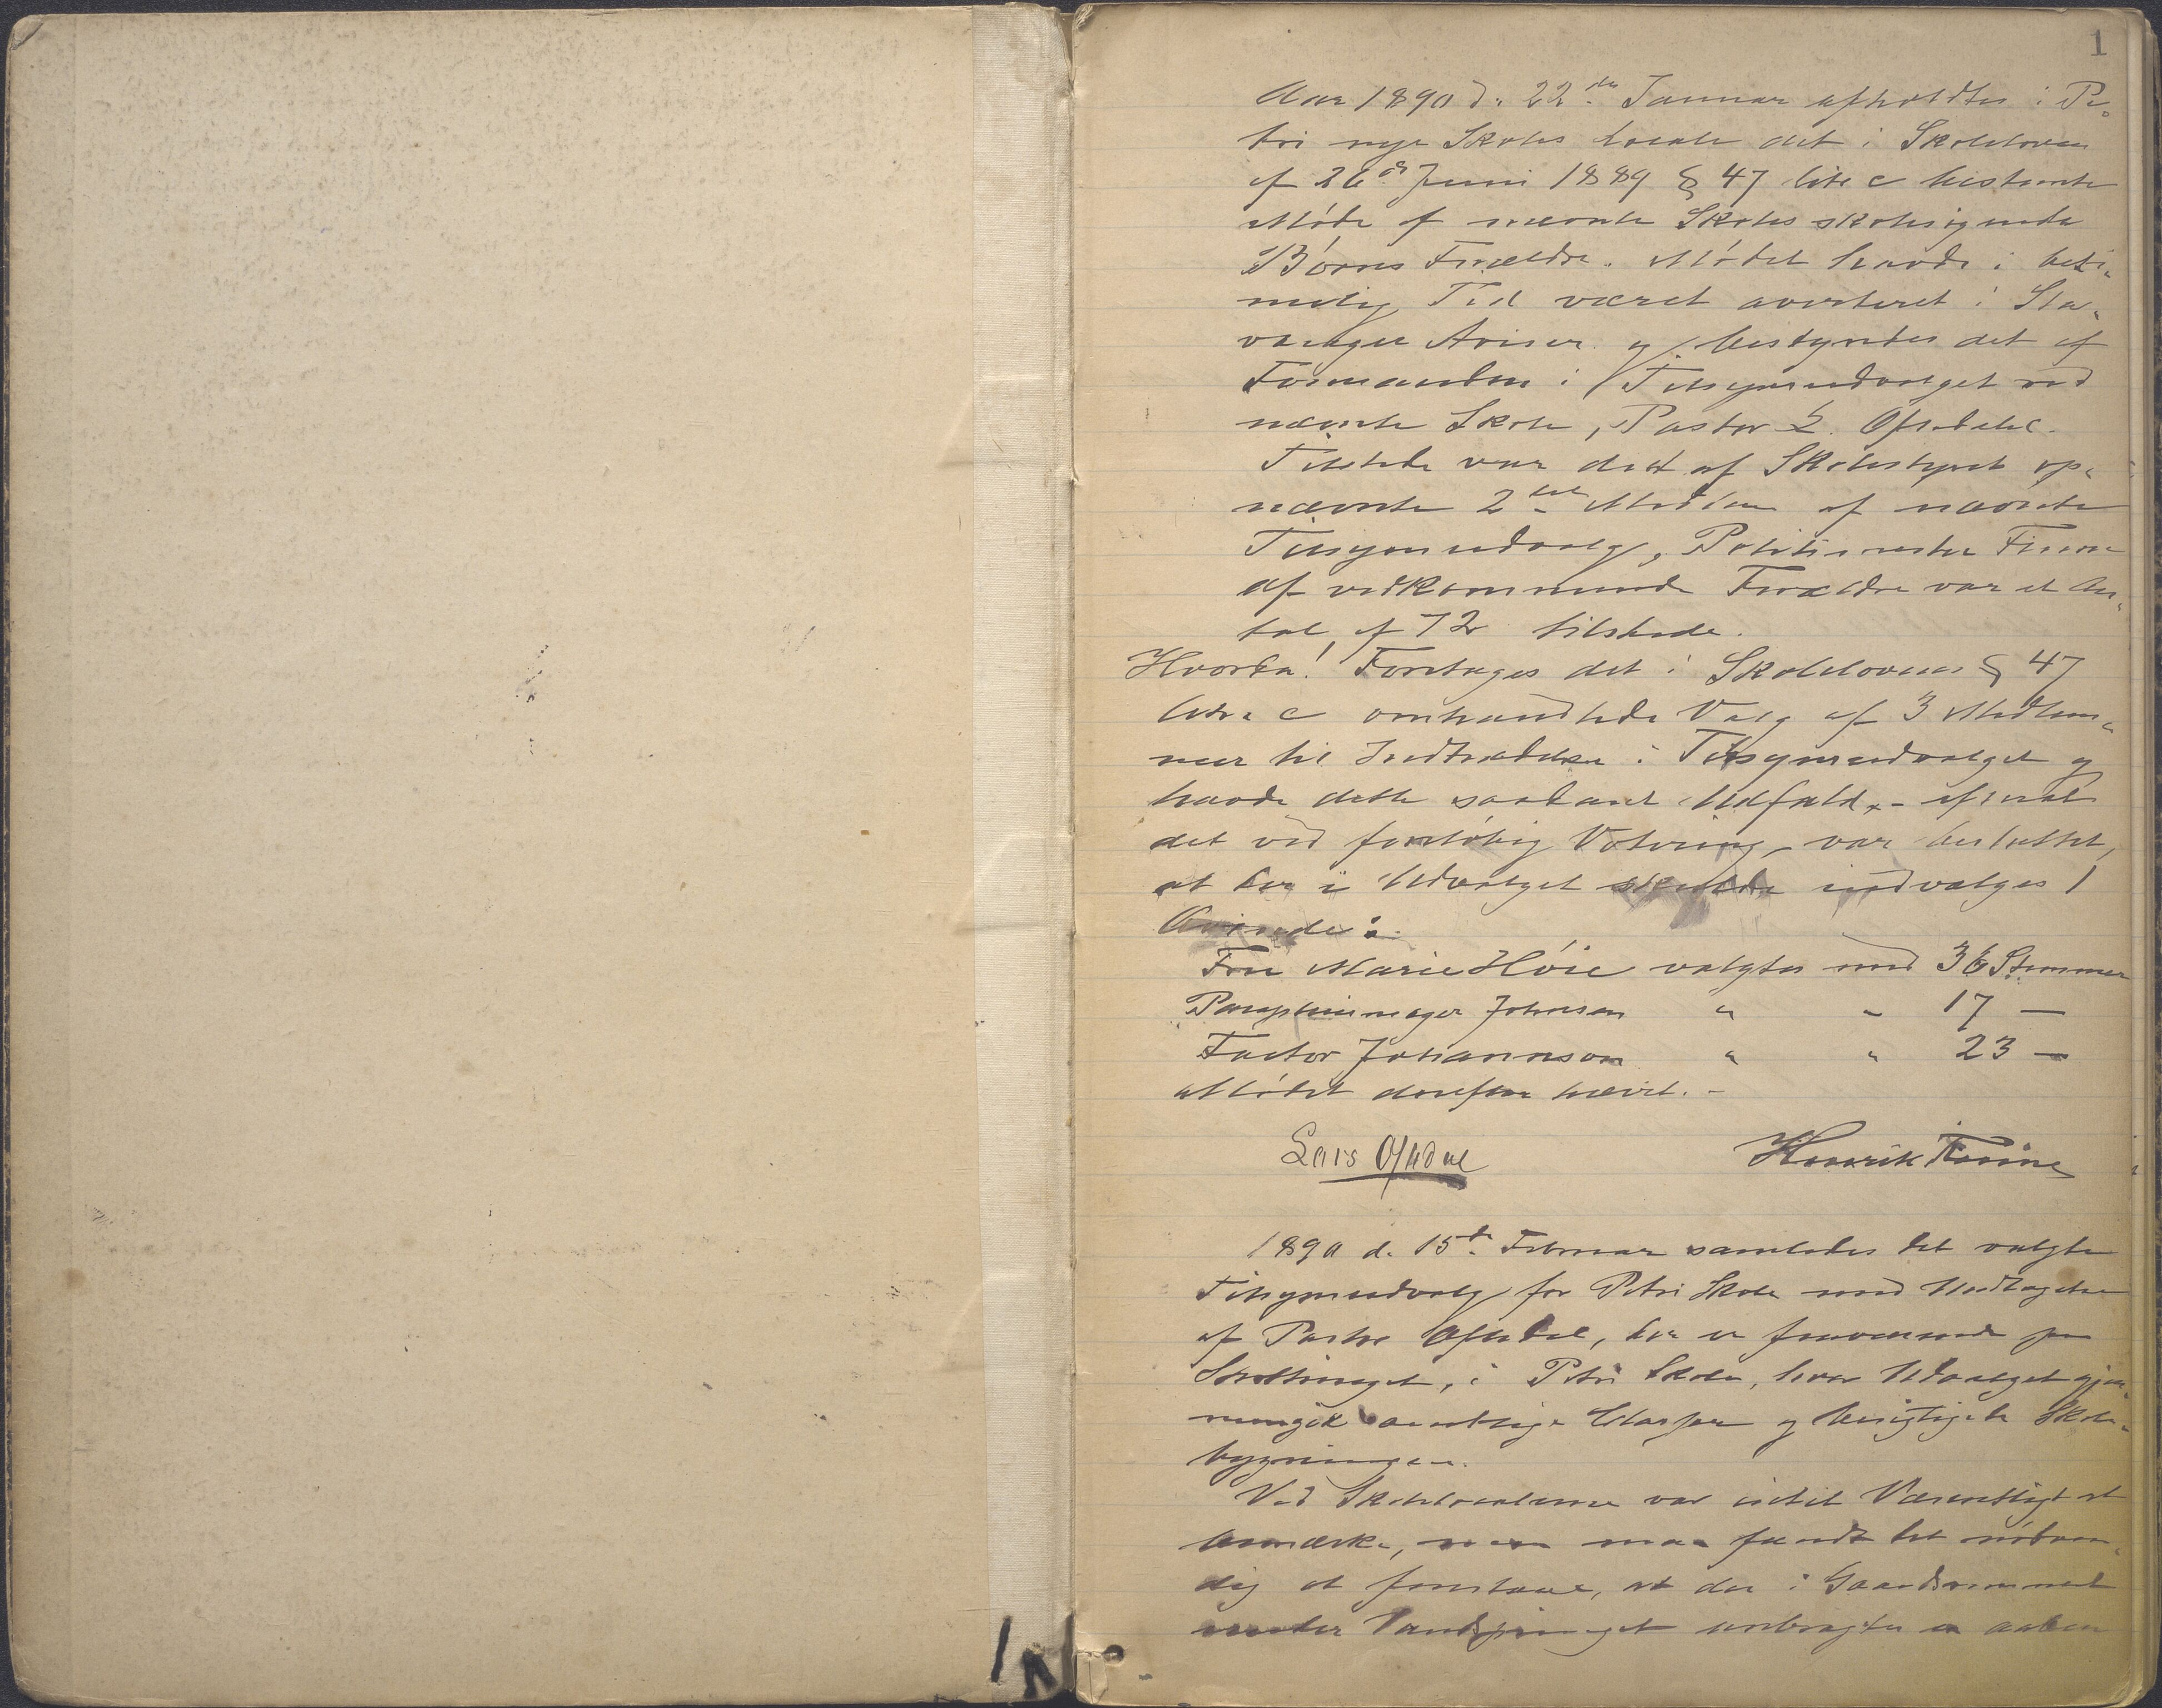 1
Aar 1890 d. 22de Januar afholdtes i Pe-
tri nye Skoles Locale det i Skoleloven
af 26de Juni 1889 § 47 litr c bestemte
Møde af nævnte Skoles skolesøgende
Børns Forældre. Mødet havde i beti-
melig Tid været averteret i Sta-
vanger Aviser og bestyrtes det af
Formanden i Tilsynsudvalget ved
nævnte Skole, Pastor L. Oftedal.
Tilstede var det af Skolestyret op-
nævnte 2det Medlem af nævnte
Tilsynsudvalg, Politimester Finne
af vedkommende Forældre var et An-
tal af 72 tilstede.
Hvorda! Foretoges det i Skolelovens § 47
litra c omhandlede Valg af 3 Medlem-
mer til Indtrædelse i Tilsynsudvalget og
havde dette saadant Udfald, - efterat
det ved foreløbig Votering var besluttet,
at der i Udvalget skulde indvælges 1
Kvinde:
Fru Marie Høie valgtes med 36 Stemmer
Johnsen " " 17 —
Factor Johannson " " 23 —
Mødet derefter hævet. -
Lars Oftedal Henrik Finne
1890 d. 15de Februar samledes det valgte
Tilsynsudvalg for Petri Skole med Undtagelse
af Pastor Oftedal, der er fraværende paa
Storthinget, i Petri Skole, hvor Udvalget gjen-
nemgik samtlige Classer og besigtigede Skole-
bygningen.
Ved Skolelocalerne var intet Væsentligt at
bemærke, men man fandt det nødven-
dig at foreslaae, at der i Gaardsrummet
under Vandspringet anbragtes en aaben